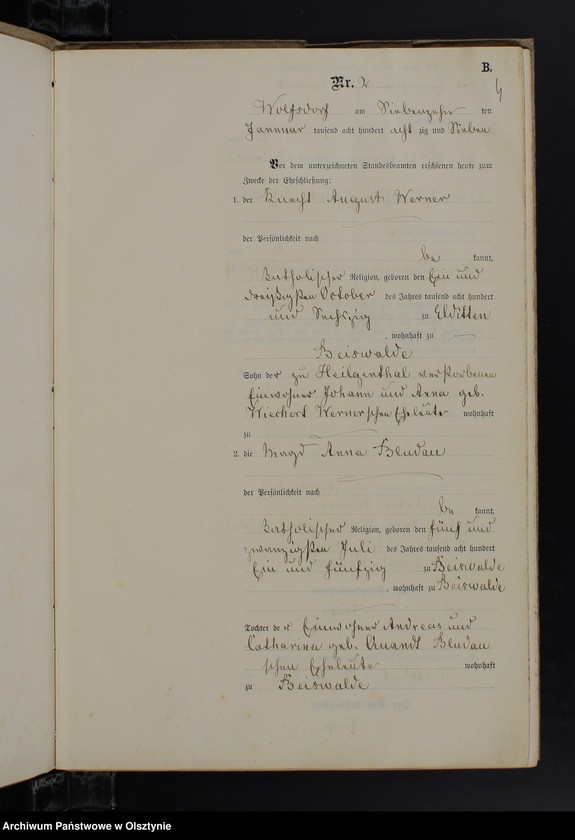 B.
4
Nr. 2
Wolfsdorf am Siebenzehn ten
Jannuar tausend acht hundert acht zig und Sieben
Vor dem unterzeichneten Standesbeamten erschienen heute zum
Zwecke der Eheschließung:
1. der Knecht August Werner
der Persönlichkeit nach
be kannt,
katholischer Religion, geboren den Ein und
dreißigsten October des Jahres tausend acht hundert
und Sechszig zu Elditten
, wohnhaft zu
Beiswalde
Sohn der zu Heilgenthal verstorbenen
Einwohner Johann und Anna geb.
Wiechert Wernerschen Eheleute wohnhaft
zu
2. die Magd Anna Blendau
der Persönlichkeit nach
be kannt,
katholischer Religion, geboren den fünf und
zwanzigsten Juli des Jahres tausend acht hundert
Ein und fünfzig zu Beiswalde
, wohnhaft zu Beiswalde
Tochter der Einwohner Andreas und
Catharina geb. Quandt Blendau
schen Eheleute wohnhaft
zu Beiswalde
Archiwum Państwowe w Olsztynie